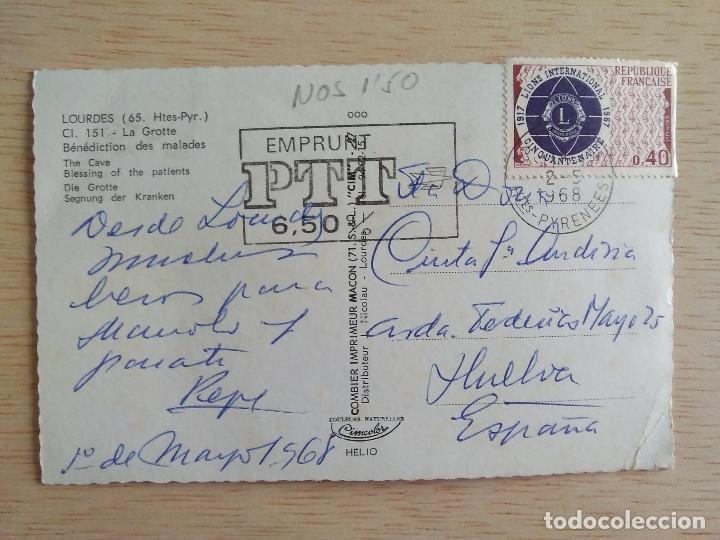 NOS 1'50
LOURDES (65. Htes-Pyr.)
Cl. 151 - La Grotte
Bénédiction des malades
The Cave
Blessing of the patients
Die Grotte
Segnung der Kranken
EMPRUNT
PTT
6,50
1917 LIONS INTERNATIONAL 1967
CINQUANTENAIRE
L
REPUBLIQUE
FRANCAISE
0,40
2-5
1968
PYRENEES
Desde Lourdes
muchos
besos para
Manolo y
para ti
Pepe
1º de Mayo 1968
COMBIER IMPRIMEUR MACON (71. S.-&-L.) "CIM"
Distributeur : Nicolau - Lourdes
COULEURS NATURELLES
Cimcolor
HELIO
Cinta
Avda. Federico Mayo
Huelva
España
todocoleccion.net